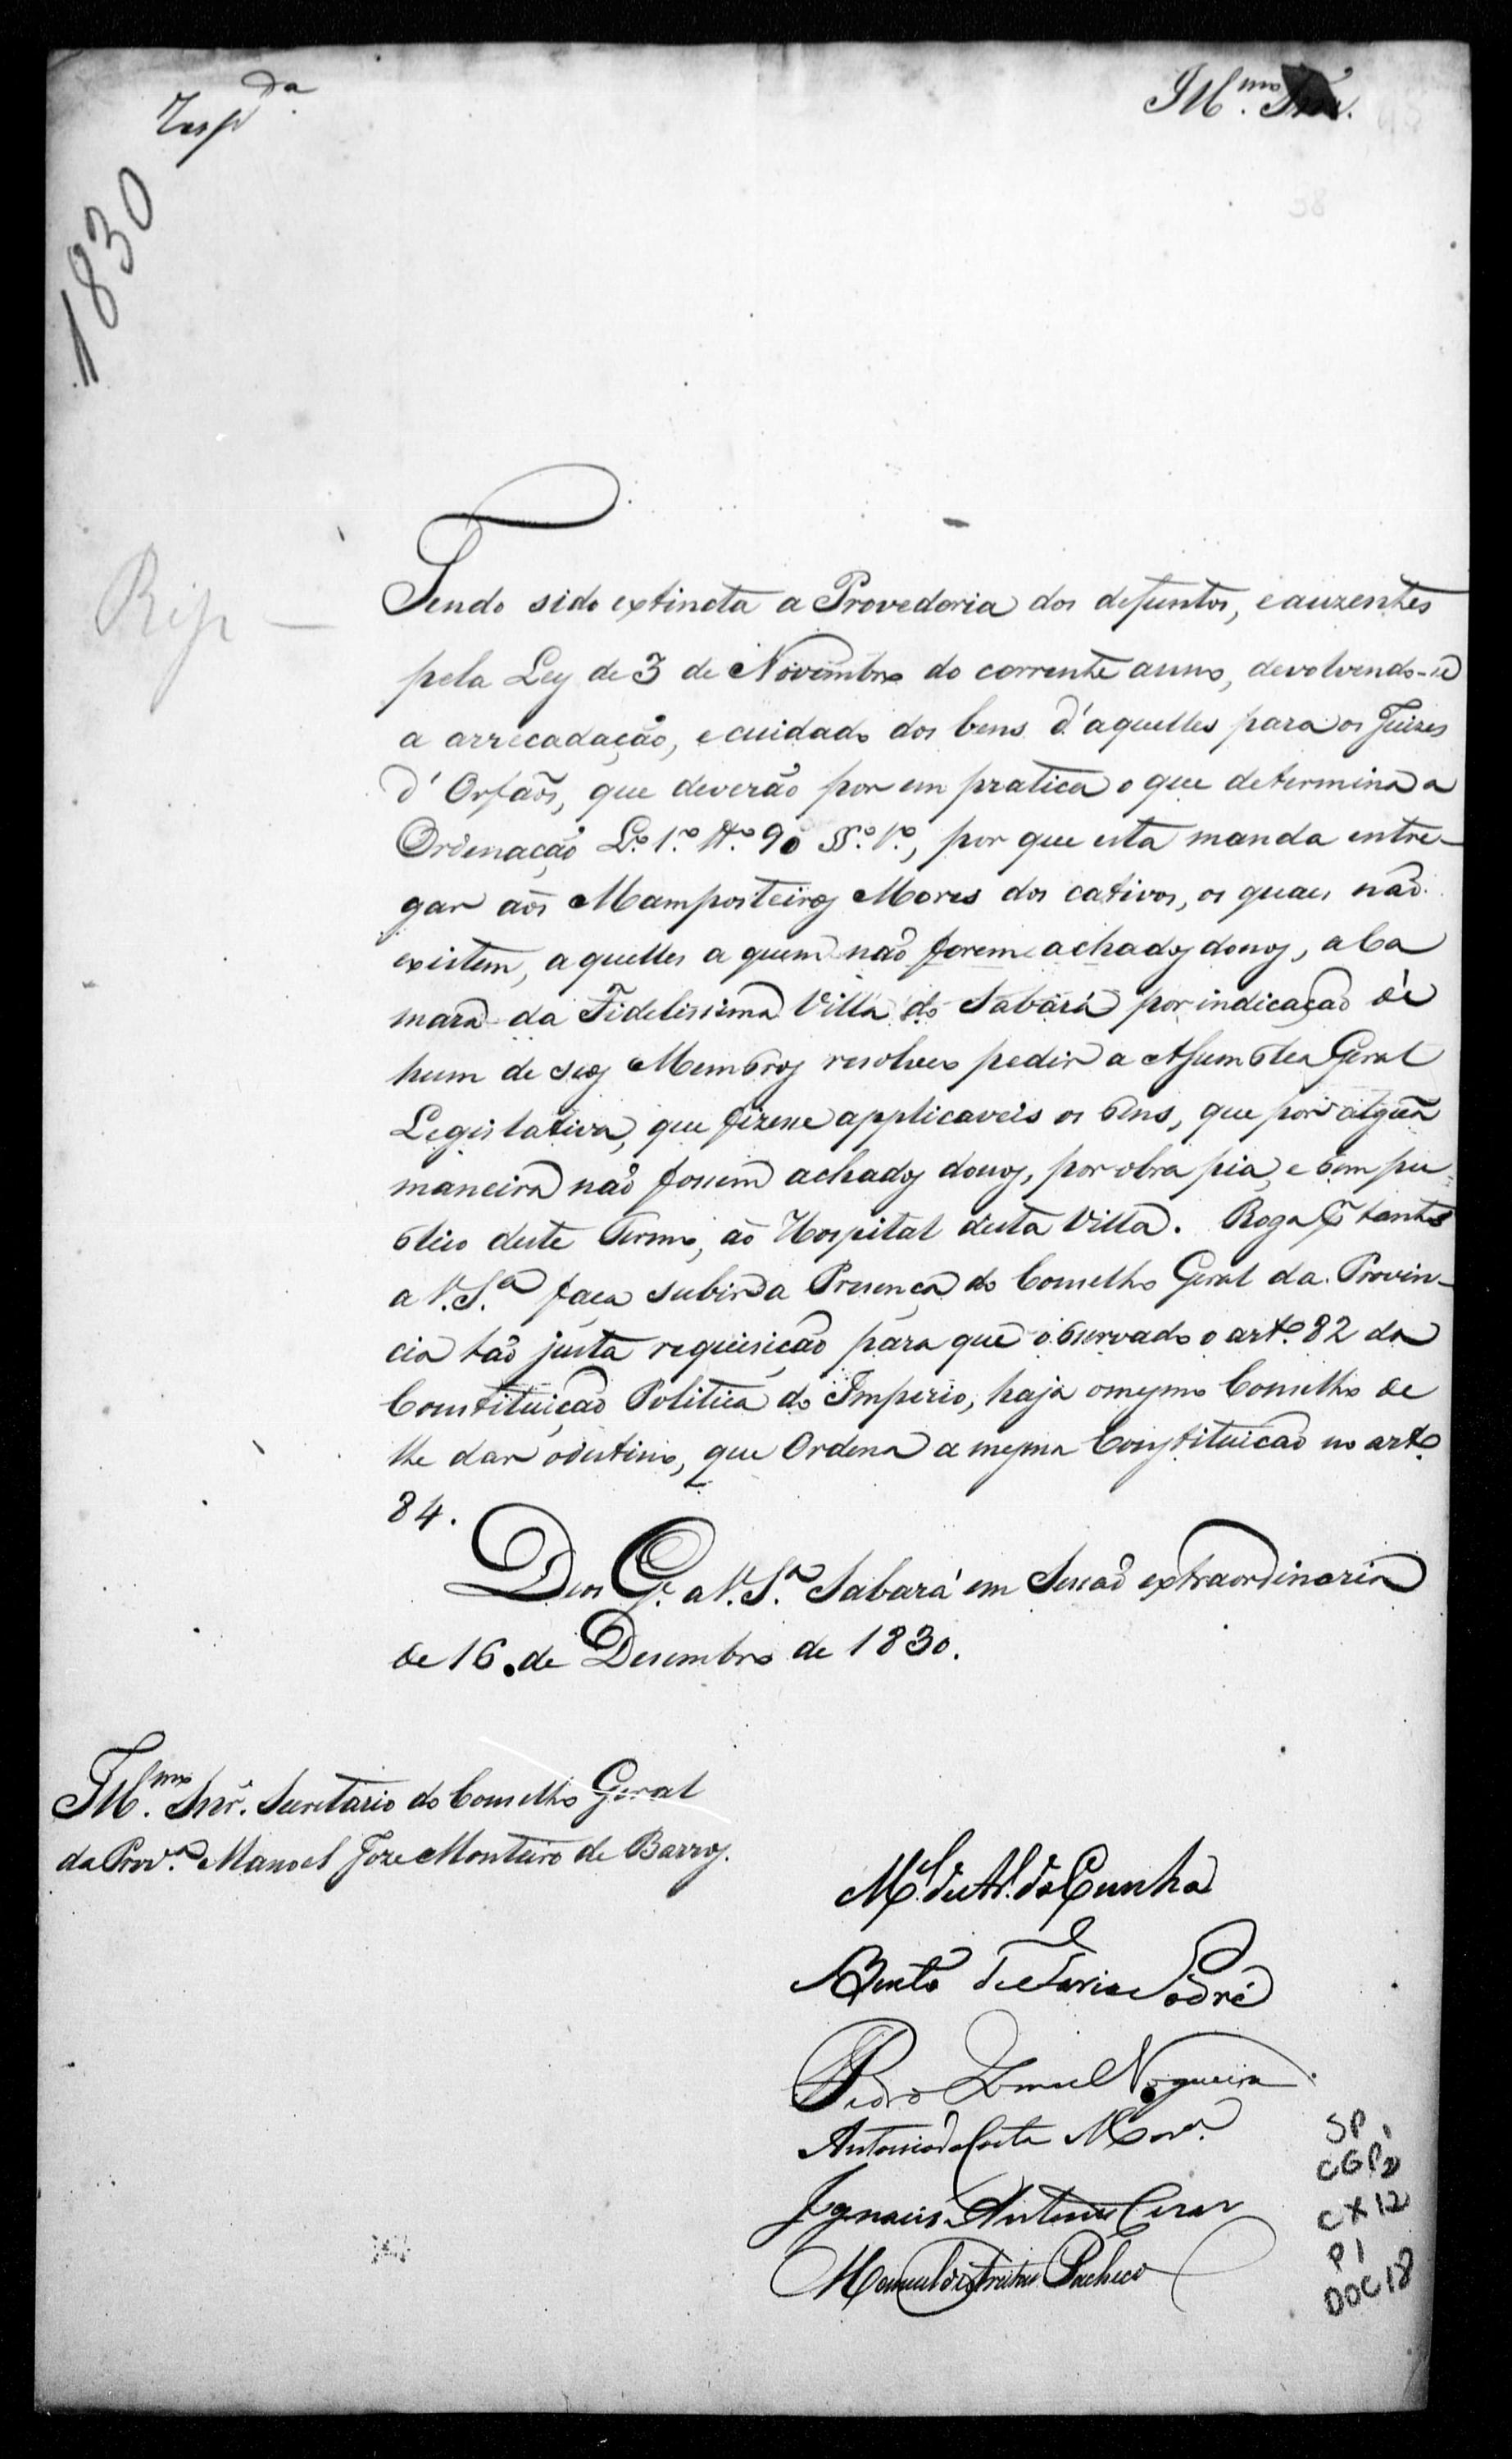 Resp.da
Ill.mo Snr.
1830
38
Resp
Tendo sido extincta a Provedoria dos defuntos, e auzentes
pela Ley de 3 de Novembro do corrente anno, devolvendo-se
a arrecadação, e cuidado dos bens d'aquelles para os Juizes
d'Orfaõs, que deverão por em pratica o que determina a
Ordenação L.º 1.º tt.º 90 §§.º 1.º, por que esta manda entre-
gar aos Mamposteiros Mores dos cativos, os quaes não
existem, aquelles a quem não forem achados donos, a Ca
mara da Fidelissima Villa do Sabará por indicação de
hum de seos Membros resolveo pedir a Assemblea Geral
Legislativa, que fizesse applicaveis os bens, que por algũa
maneira não fossem achados donos, por obra pia, e bem pu-
blico deste Termo, ao Hospital desta Villa. Roga por tanto
a V.S.ª faça subir a Presença do Conselho Geral da Provin-
cia tão justa requisição para que observado o art.º 82 da
Constituição Politica do Imperio, haja o mesmo Conselho de
lhe dar o destino, que Ordena a mesma Constituição no art.º
84.
Deos G.e a V.S.ª Sabará em Sessão extraordinaria
de 16 de Desembro de 1830.
Ill.mo Snr. Secretario do Conselho Geral
da Prov.ª Manoel Joze Monteiro de Barros.
M.el de da Cunha
Bento de Faria Sodré
Pedro Nogueira
Antonio da Costa Mor.ª
Ignacio Antonio Cesar
Manuel de Freitas Pacheco
SP
CGP2
CX12
P1
DOC18